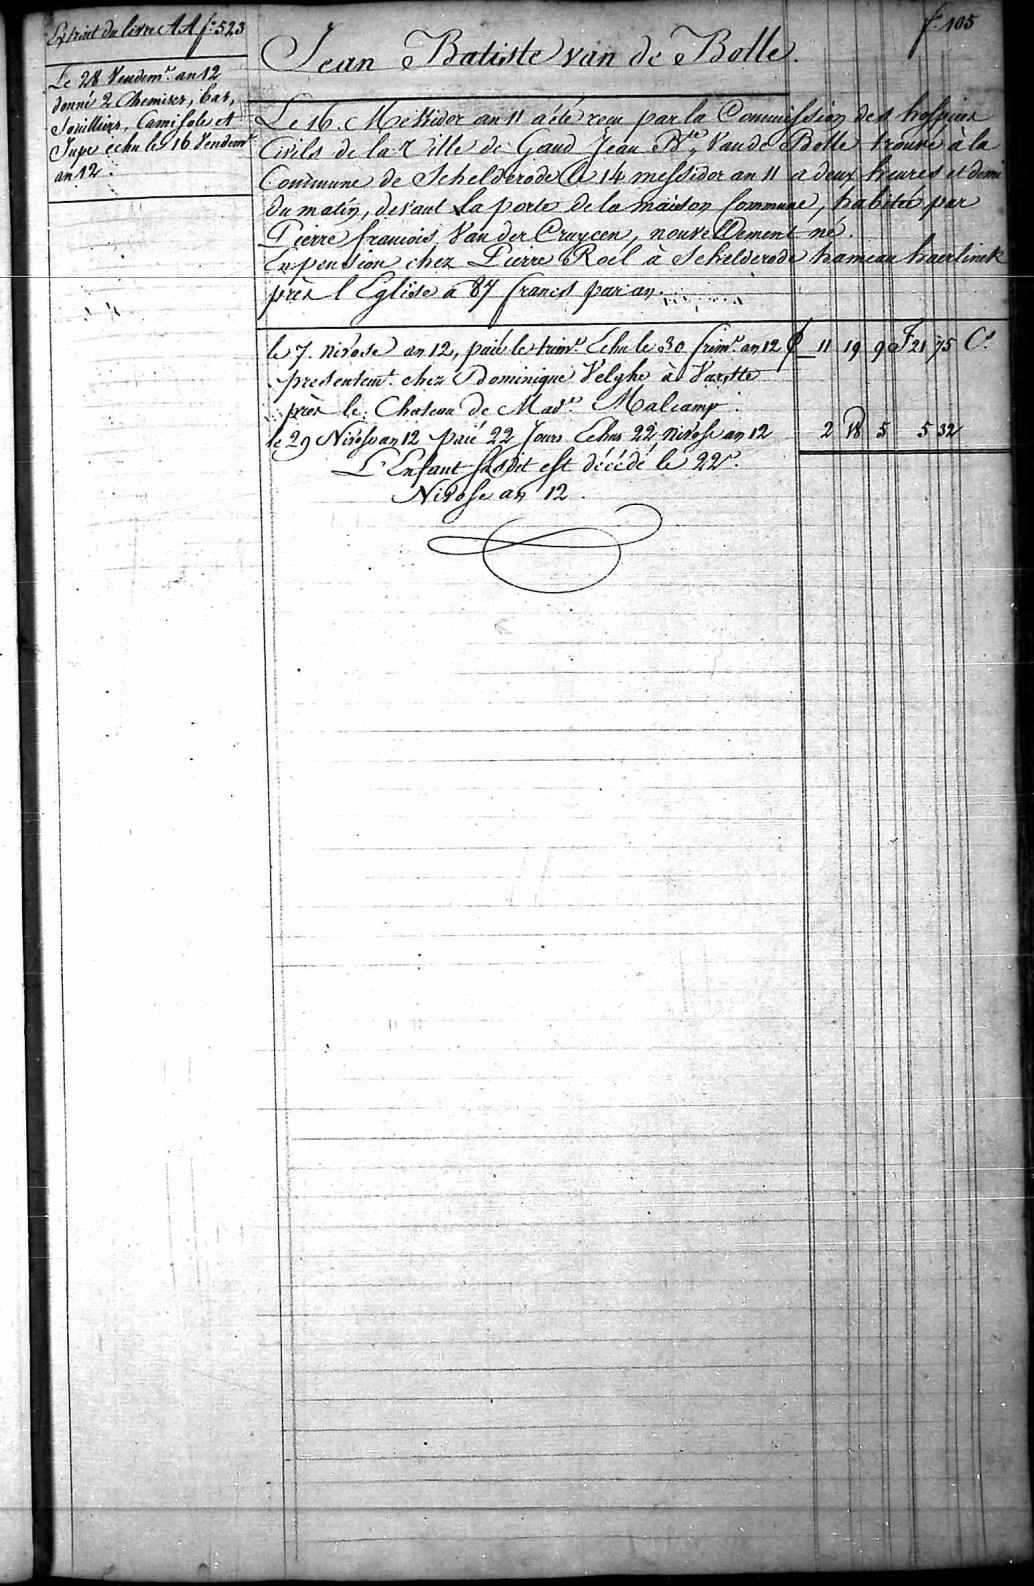 Extrait du livre AA f.° 523
f.° 105
Jean Batiste van de Bolle.
Le 28 Vendem.re an 12
donné 2 Chemises, bas,
Souilliers, Camisole et
Jupe echu le 16 Vendem.re
an 12.
Le 16. Messidor an 11 a été reçu par la Commission des hospices
Civils de la Ville de Gand Jean Bte. Van de Bolle trouvé à la
Commune de Schelderode le 14 messidor an 11 a deux heures et demi
du matin, devant la porte de la maison Commune, habitée par
Pierre francois Van der Cruycen, nouvellement né.
En pension chez Pierre Roel à Schelderode hameau haerlinck
près l'Eglise a 87 francs par an.
le 7. nivose an 12, paié le trim.re Echu le 30 frim.re an 12 11 19 9 F 21 75 C.s
presentem.t chez Dominique Velghe à
près le Chateau de Mad.e Malcamp.
le 29 Nivose an 12 paié 22 Jours Echus 22 nivose an 12 2 18 5 5 32
L'Enfant susdit est décédé le 22.
Nivose an 12.